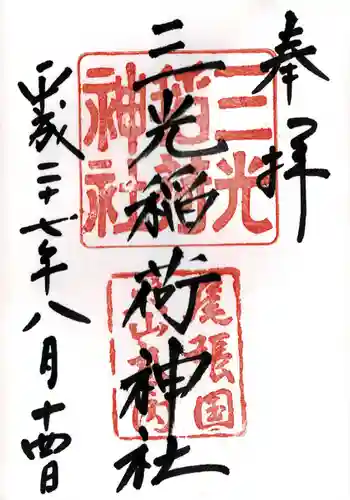 奉拝
三光稲荷神社
平成二十七年八月十四日
三光稲荷神社
尾張国犬山城内